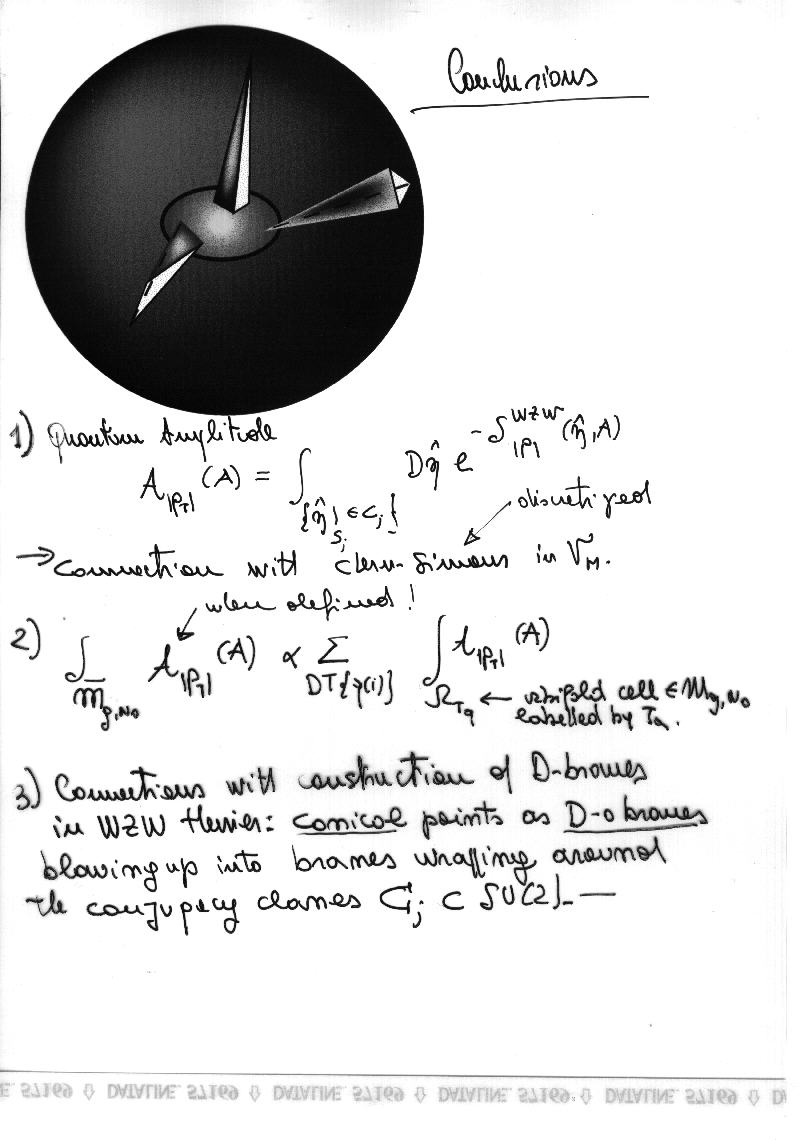 Conclusions
1) Quantum Amplitude
A_{|P_T|}(A) = ∫_{{η̂|_{S_j} ∈ C_j}} Dη̂ e^{-S^{WZW}_{|P|}(η̂,A)}
discretized
→ Connection with Chern-Simons in V_M.
when defined!
2) ∫_{\overline{M}_{g,N_0}} A_{|P_T|}(A) ∝ Σ_{DT{q(i)}} ∫_{Ω_{T_a}} A_{|P_T|}(A)
← orbifold cell ∈ M_{g,N_0}
labelled by T_a.
3) Connections with construction of D-branes
in WZW theories: conical points as D-0 branes
blowing up into branes wrapping around
the conjugacy classes C_j ⊂ SU(2).—
DATALINE 57169 ⇩ DATALINE 57169 ⇩ DATALINE 57169 ⇩ DATALINE 57169 ⇩